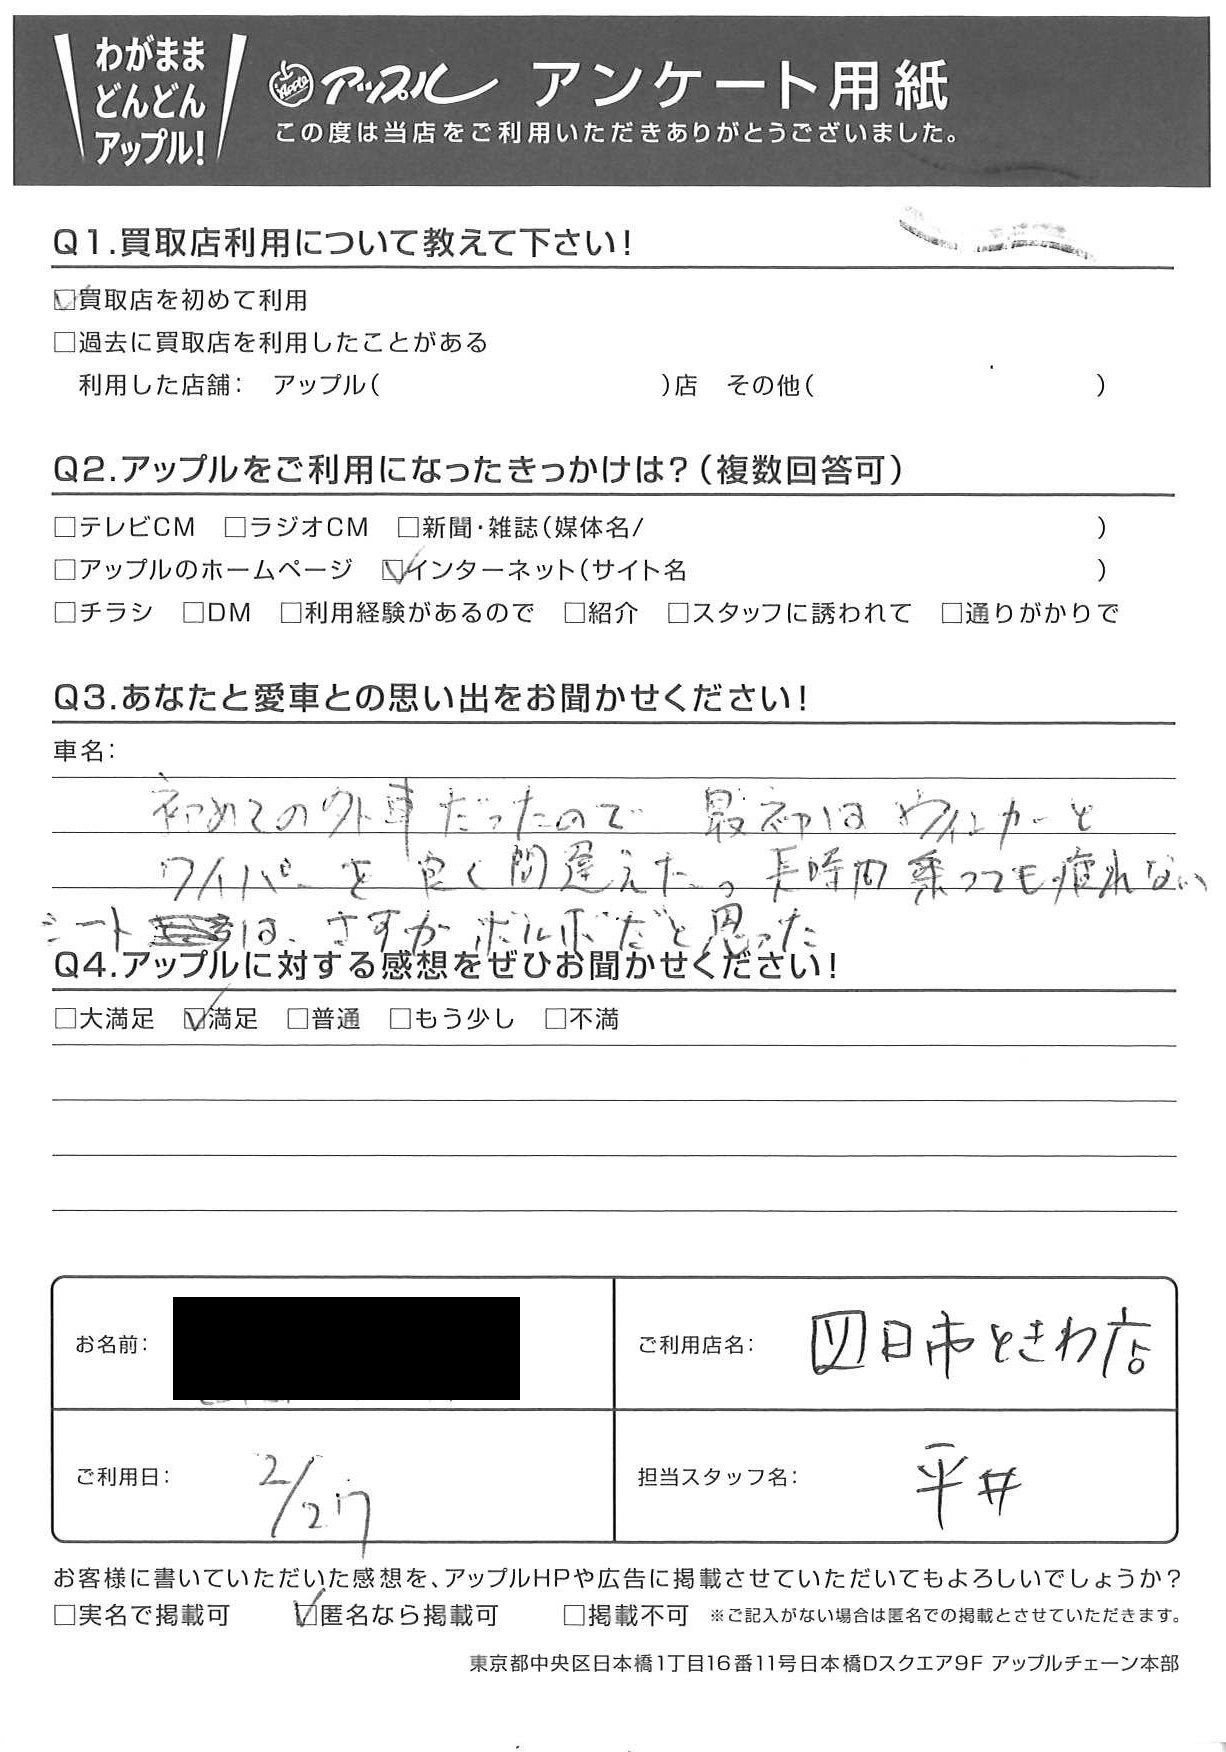 わがまま
どんどん
アップル!
Apple アップル アンケート用紙
この度は当店をご利用いただきありがとうございました。
Q1.買取店利用について教えて下さい!
☑買取店を初めて利用
□過去に買取店を利用したことがある
利用した店舗: アップル( )店 その他( )
Q2.アップルをご利用になったきっかけは?(複数回答可)
□テレビCM □ラジオCM □新聞・雑誌(媒体名/ )
□アップルのホームページ ☑インターネット(サイト名 )
□チラシ □DM □利用経験があるので □紹介 □スタッフに誘われて □通りがかりで
Q3.あなたと愛車との思い出をお聞かせください!
車名:
初めての外車だったので 最初はウインカーと
ワイパーを良く間違えた。長時間乗っても疲れない
シートは、さすがボルボだと思った
Q4.アップルに対する感想をぜひお聞かせください!
□大満足 ☑満足 □普通 □もう少し □不満
お名前:
ご利用店名: 四日市ときわ店
ご利用日: 2/27
担当スタッフ名: 平井
お客様に書いていただいた感想を、アップルHPや広告に掲載させていただいてもよろしいでしょうか?
□実名で掲載可 ☑匿名なら掲載可 □掲載不可 ※ご記入がない場合は匿名での掲載とさせていただきます。
東京都中央区日本橋1丁目16番11号日本橋Dスクエア9F アップルチェーン本部